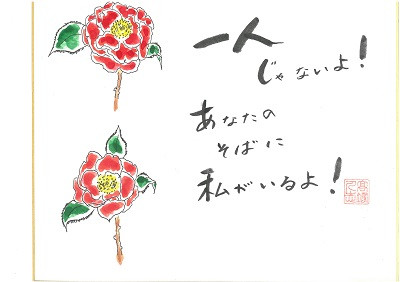 一人
じゃないよ!
あなたの
そばに
私がいるよ!